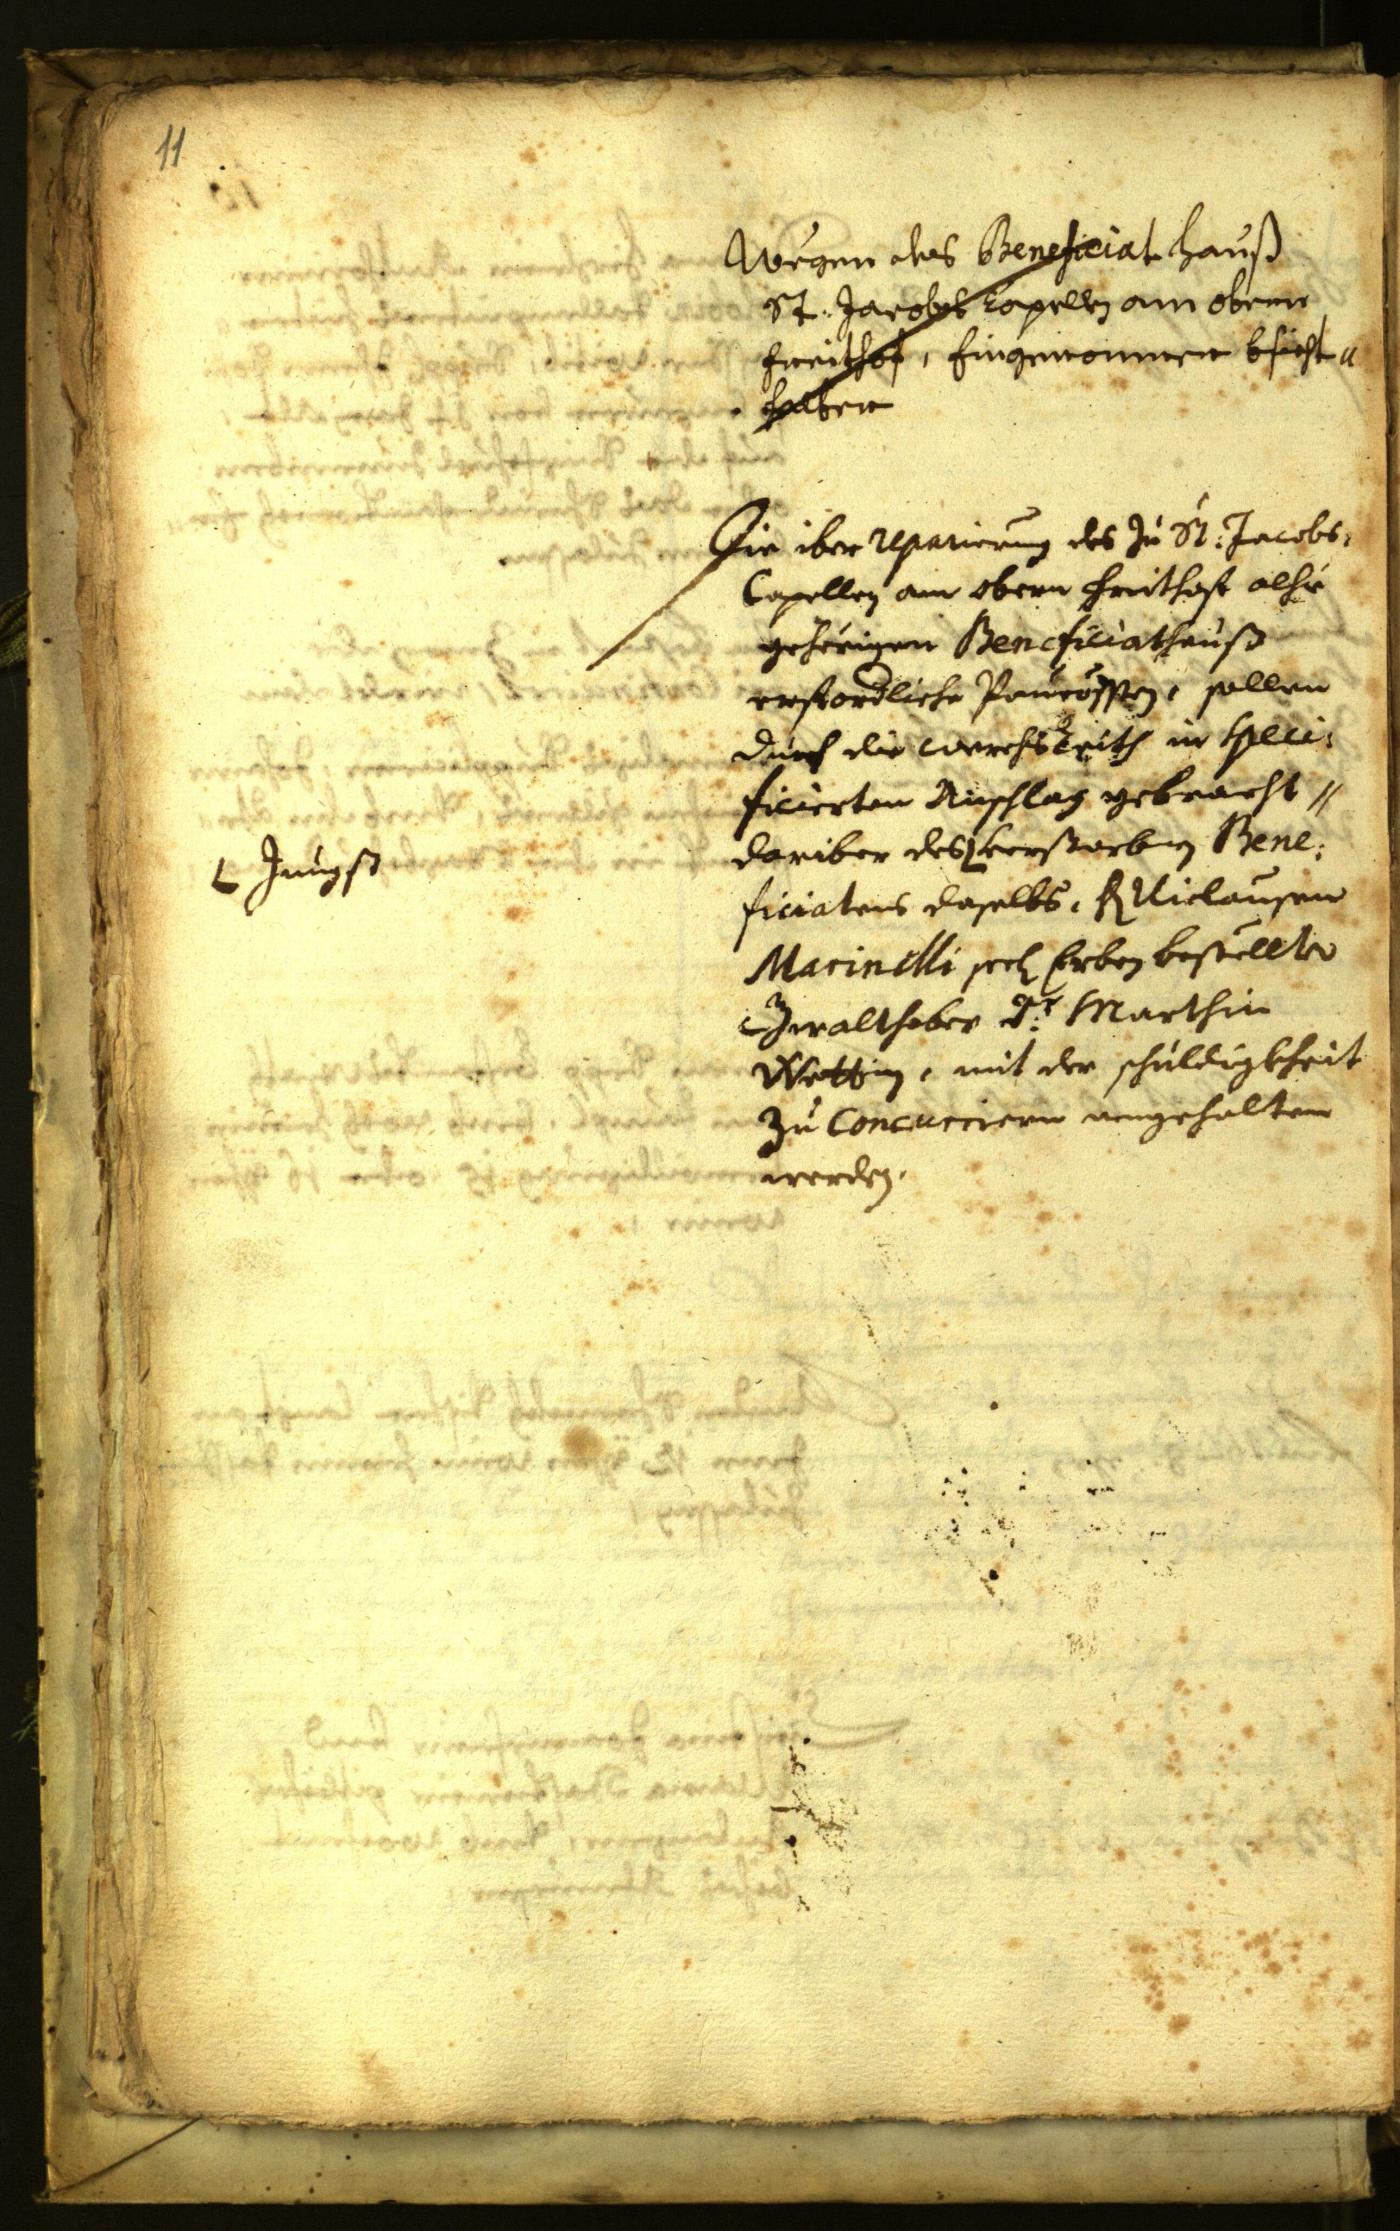 11
Wegen des Beneficiat hauß
St: Jacobs Capellen am obern
freithof, Eingenommen bsicht
haben
Die iber reparierung des zu St: Jacobs,
Capellen am obern freithoft alhie
gehörigen Beneficiathauß
erfordliche Paucössten, sollen
durch die werchsleith in speci,
ficierten Anschlag gebracht //
dariber des verstorbnen Bene,
Jüngst
ficiatens daselbs, H Niclausen
Marinelli seel Erben bestellte
Gwalthaber Dr: Marthin
Wetting, mit der schuldigkheit
zu concurriern angehalten
werden.